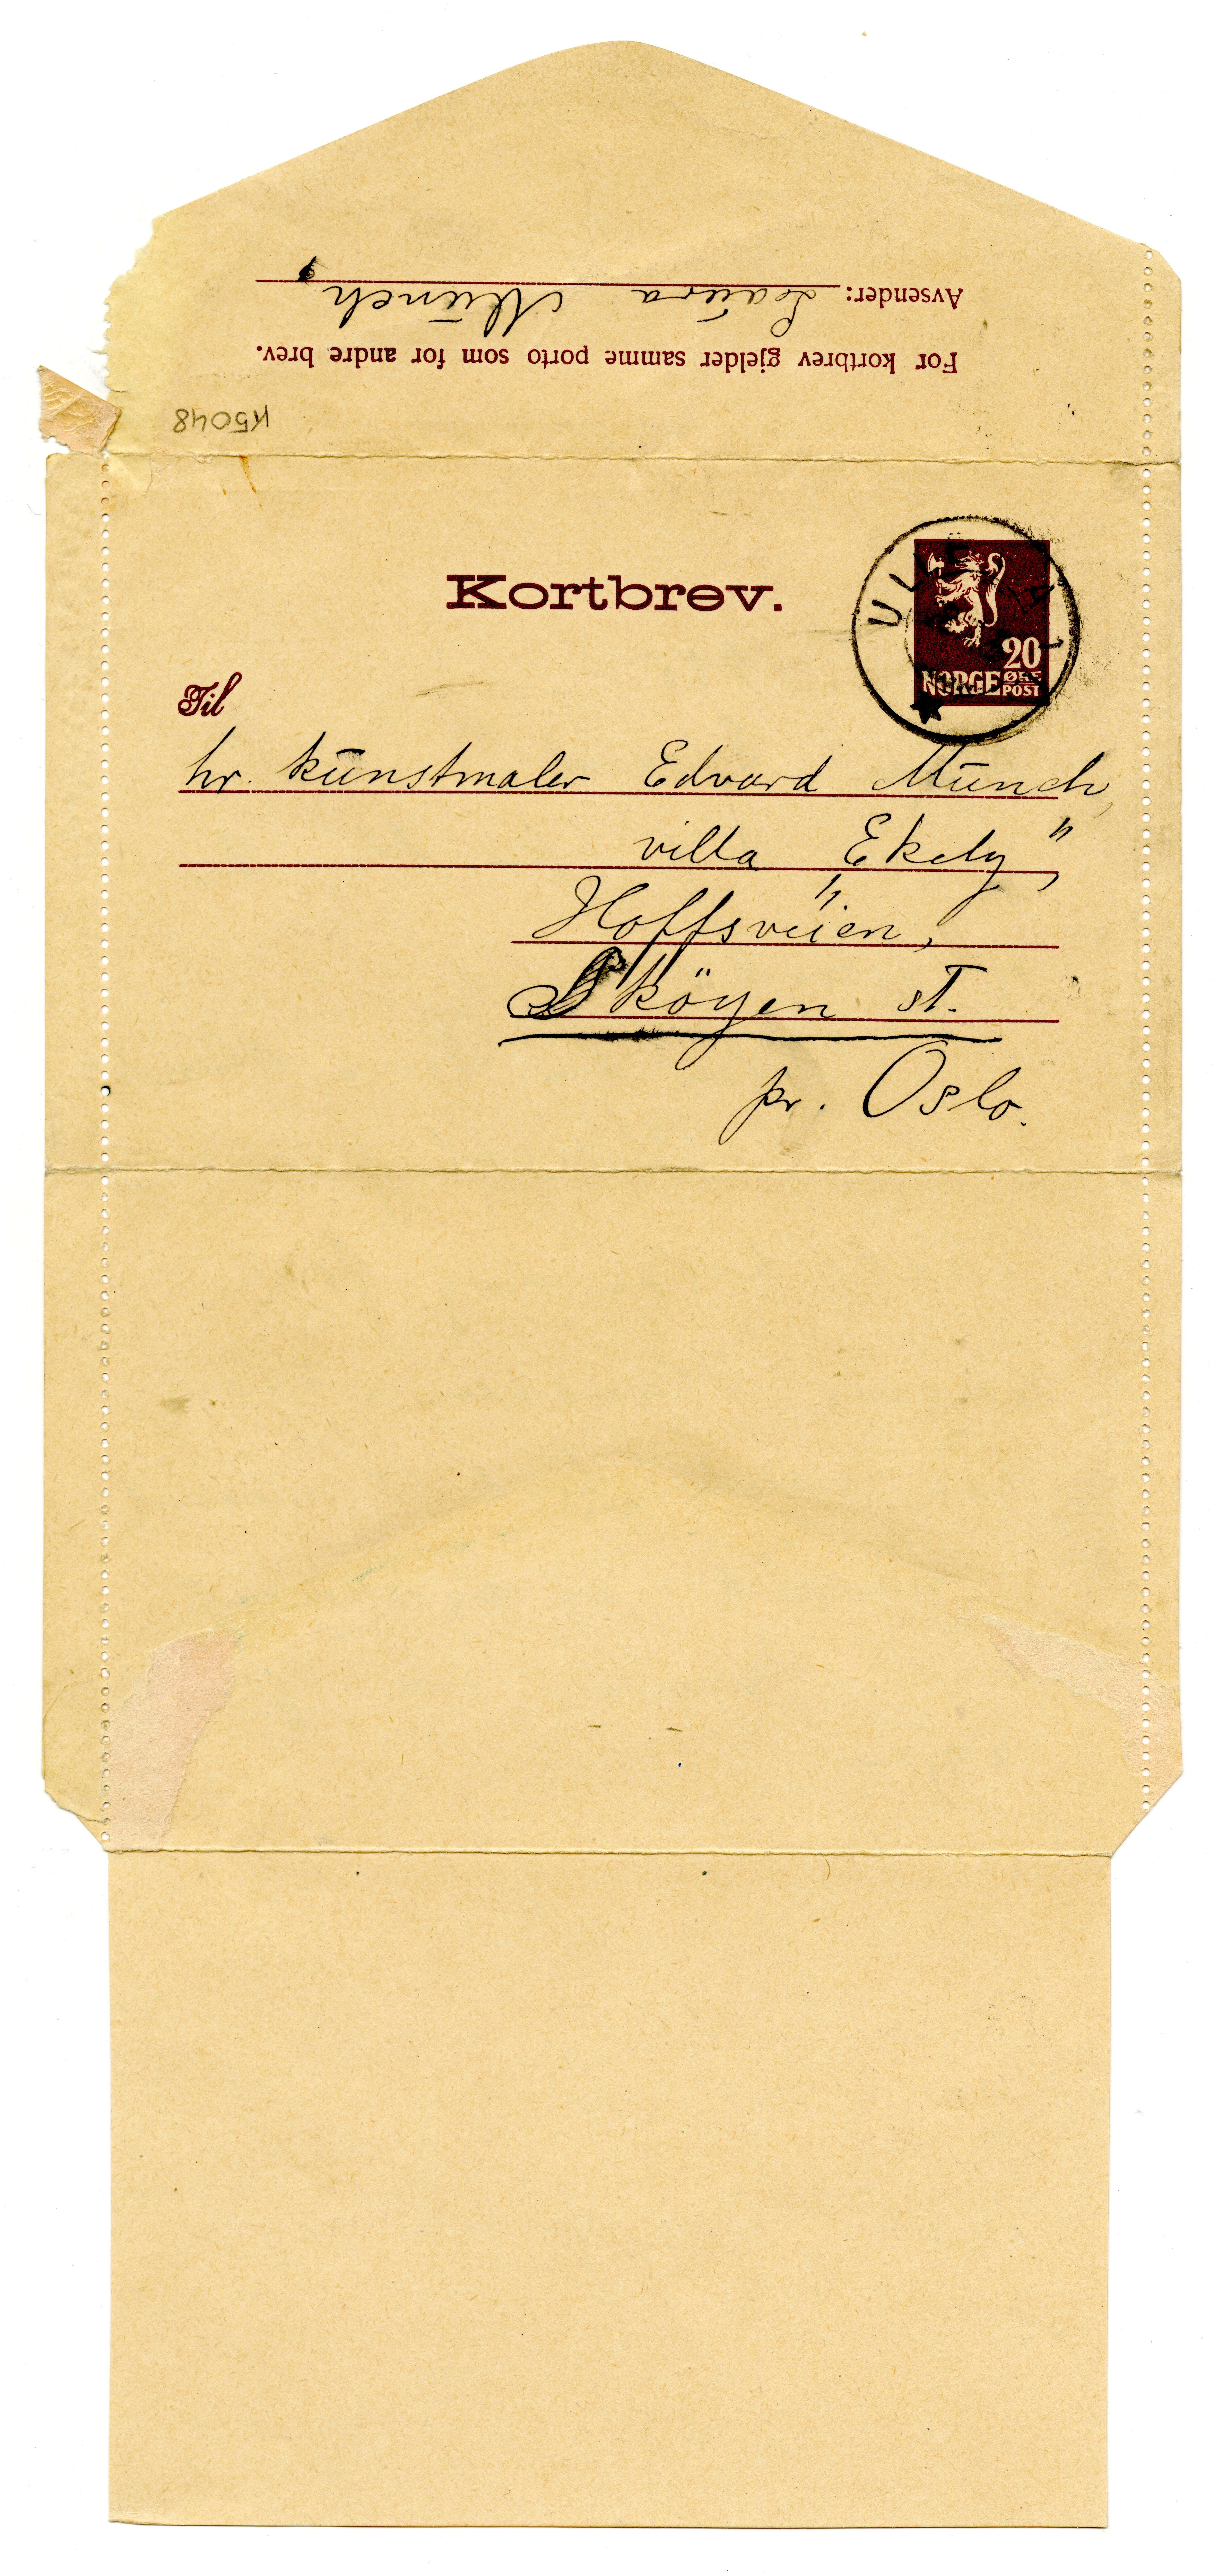 Avsender: Laŭra Mŭnch,
For kortbrev gjelder samme porto som for andre brev.
K5048
Kortbrev.
20
NORGE ØRE
POST
Til
hr. kŭnstmaler Edvard Mŭnch,
villa „Ekely”,
Hoffsveien,
Sköyen st.
pr. Oslo.